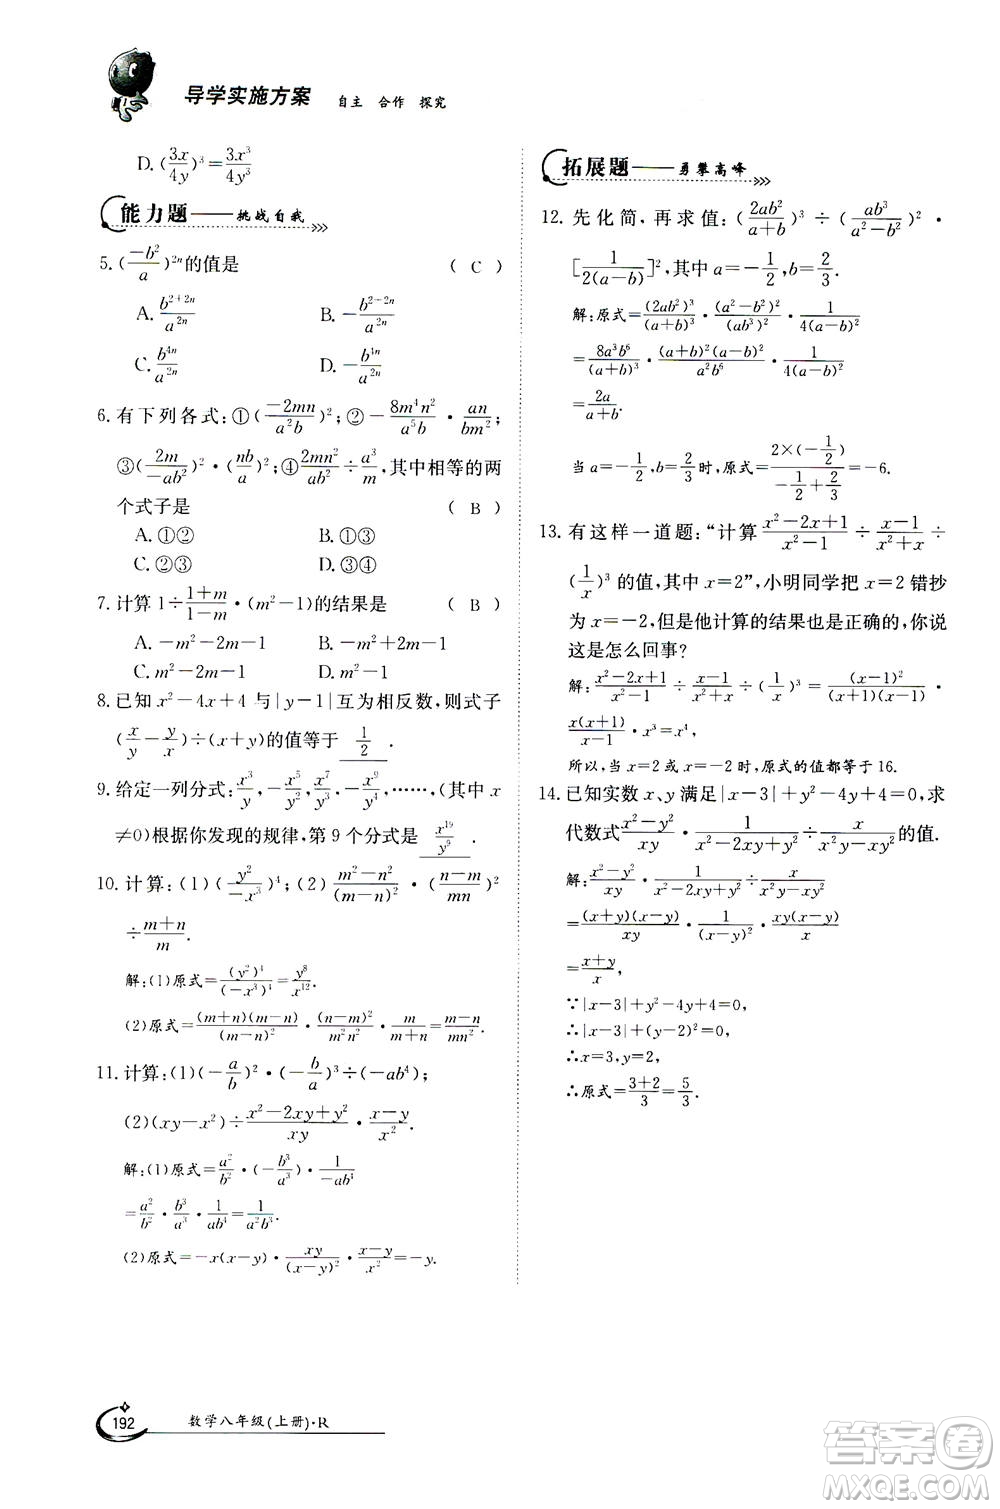 导学实施方案 自主 合作 探究
D. (3x/4y)³=3x³/4y³
能力题——挑战自我
5. (−b²/a)²ⁿ的值是 ( C )
A. b²⁺²ⁿ/a²ⁿ B. −b²⁻²ⁿ/a²ⁿ
C. b⁴ⁿ/a²ⁿ D. −b⁴ⁿ/a²ⁿ
6. 有下列各式:①(−2mn/a²b)²;②−8m⁴n²/a⁵b · an/bm²;
③(2m/−ab²)²·(nb²/a)²;④2mn²/ab²÷a³/m,其中相等的两
个式子是 ( B )
A. ①② B. ①③
C. ②③ D. ③④
7. 计算1÷(1+m)/(1−m)·(m²−1)的结果是 ( B )
A. −m²−2m−1 B. −m²+2m−1
C. m²−2m−1 D. m²−1
8. 已知x²−4x+4与|y−1|互为相反数,则式子
(x/y−y/x)÷(x+y)的值等于 1/2 .
9. 给定一列分式:x³/y,−x⁵/y²,x⁷/y³,−x⁹/y⁴,……,(其中x
≠0)根据你发现的规律,第9个分式是 x¹⁹/y⁹ .
10. 计算:(1)(y²/−x³)⁴;(2)(m²−n²)/(m−n)²·((n−m)/mn)²
÷(m+n)/m.
解:(1)原式=(y²)⁴/(−x³)⁴=y⁸/x¹².
(2)原式=(m+n)(m−n)/(m−n)²·(n−m)²/m²n²·m/(m+n)=(m−n)/mn².
11. 计算:(1)(−a/b)²·(−b/a)³÷(−ab⁴);
(2)(xy−x²)÷(x²−2xy+y²)/xy·(x−y)/x².
解:(1)原式=a²/b²·(−b³/a³)·1/−ab⁴
=a²/b²·b³/a³·1/ab⁴=1/a²b³.
(2)原式=−x(x−y)·xy/(x−y)²·(x−y)/x²=−y.
拓展题——勇攀高峰
12. 先化简,再求值:(2ab²/(a+b))³÷(ab³/(a²−b²))²·
[1/2(a−b)]²,其中a=−1/2,b=2/3.
解:原式=(2ab²)³/(a+b)³·(a²−b²)²/(ab³)²·1/4(a−b)²
=8a³b⁶/(a+b)³·(a+b)²(a−b)²/a²b⁶·1/4(a−b)²
=2a/(a+b).
当a=−1/2,b=2/3时,原式=2×(−1/2)/(−1/2+2/3)=−6.
13. 有这样一道题:“计算(x²−2x+1)/(x²−1)÷(x−1)/(x²+x)÷
(1/x)³的值,其中x=2”,小明同学把x=2错抄
为x=−2,但是他计算的结果也是正确的,你说
这是怎么回事?
解:(x²−2x+1)/(x²−1)÷(x−1)/(x²+x)÷(1/x)³=(x−1)²/(x+1)(x−1)·
x(x+1)/(x−1)·x³=x⁴.
所以,当x=2或x=−2时,原式的值都等于16.
14. 已知实数x、y满足|x−3|+y²−4y+4=0,求
代数式(x²−y²)/xy·1/(x²−2xy+y²)÷x/(x²y−xy²)的值.
解:(x²−y²)/xy·1/(x²−2xy+y²)÷x/(x²y−xy²)
=(x+y)(x−y)/xy·1/(x−y)²·xy(x−y)/x
=(x+y)/x,
∵|x−3|+y²−4y+4=0,
∴|x−3|+(y−2)²=0,
∴x=3,y=2,
∴原式=(3+2)/3=5/3.
192 数学八年级(上册)·R
答案圈
MXQE.COM